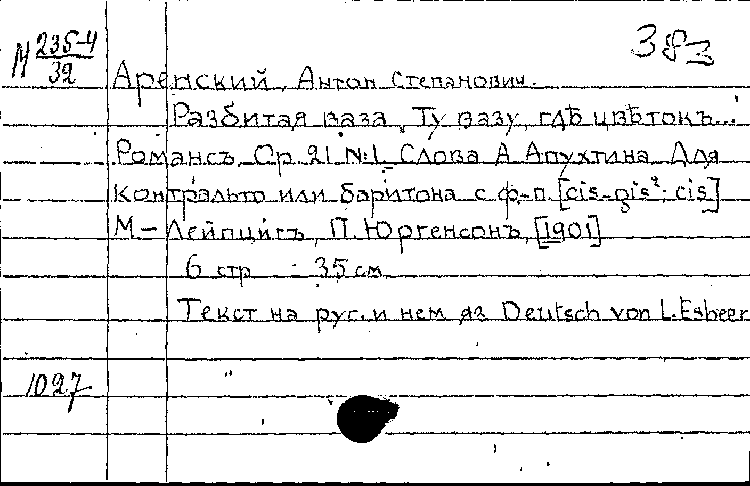 М 235-4
32
383
Аренский, Антон Степанович.
Разбитая ваза „Ту вазу, гдѣ цвѣтокъ..."
Романсъ. Ор. 21 №1. Слова А. Апухтина. Для
контральто или баритона с ф-п. [cis-gis²; cis]
М.– Лейпцигъ, П. Юргенсонъ, [1901]
6 стр. 35 см.
Текст на рус. и нем. яз. Deutsch von L. Esbeer
1027